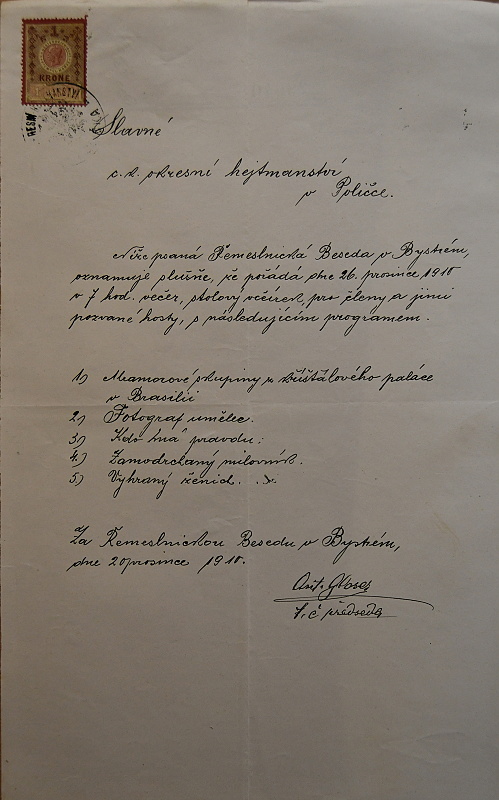 1
KRONE
Slavné
c. k. okresní hejtmanství
v Poličce.
Níže psaná Řemeslnická Beseda v Bystrém,
oznamuje slušně, že pořádá dne 26. prosince 1910
v 7 hod. večer, stolový věneček, pro členy a jimi
pozvané hosty, s následujícím programem.
1) Mramorové skupiny z křišťálového paláce
v Brasilii
2) Fotograf umělec.
3) Kdo má pravdu:
4.) Zamodrchaný milovník.
5) Vyhraný ženich.
Za Řemeslnickou Besedu v Bystrém,
dne 20 prosince 1910.
Ant.
t. č předseda